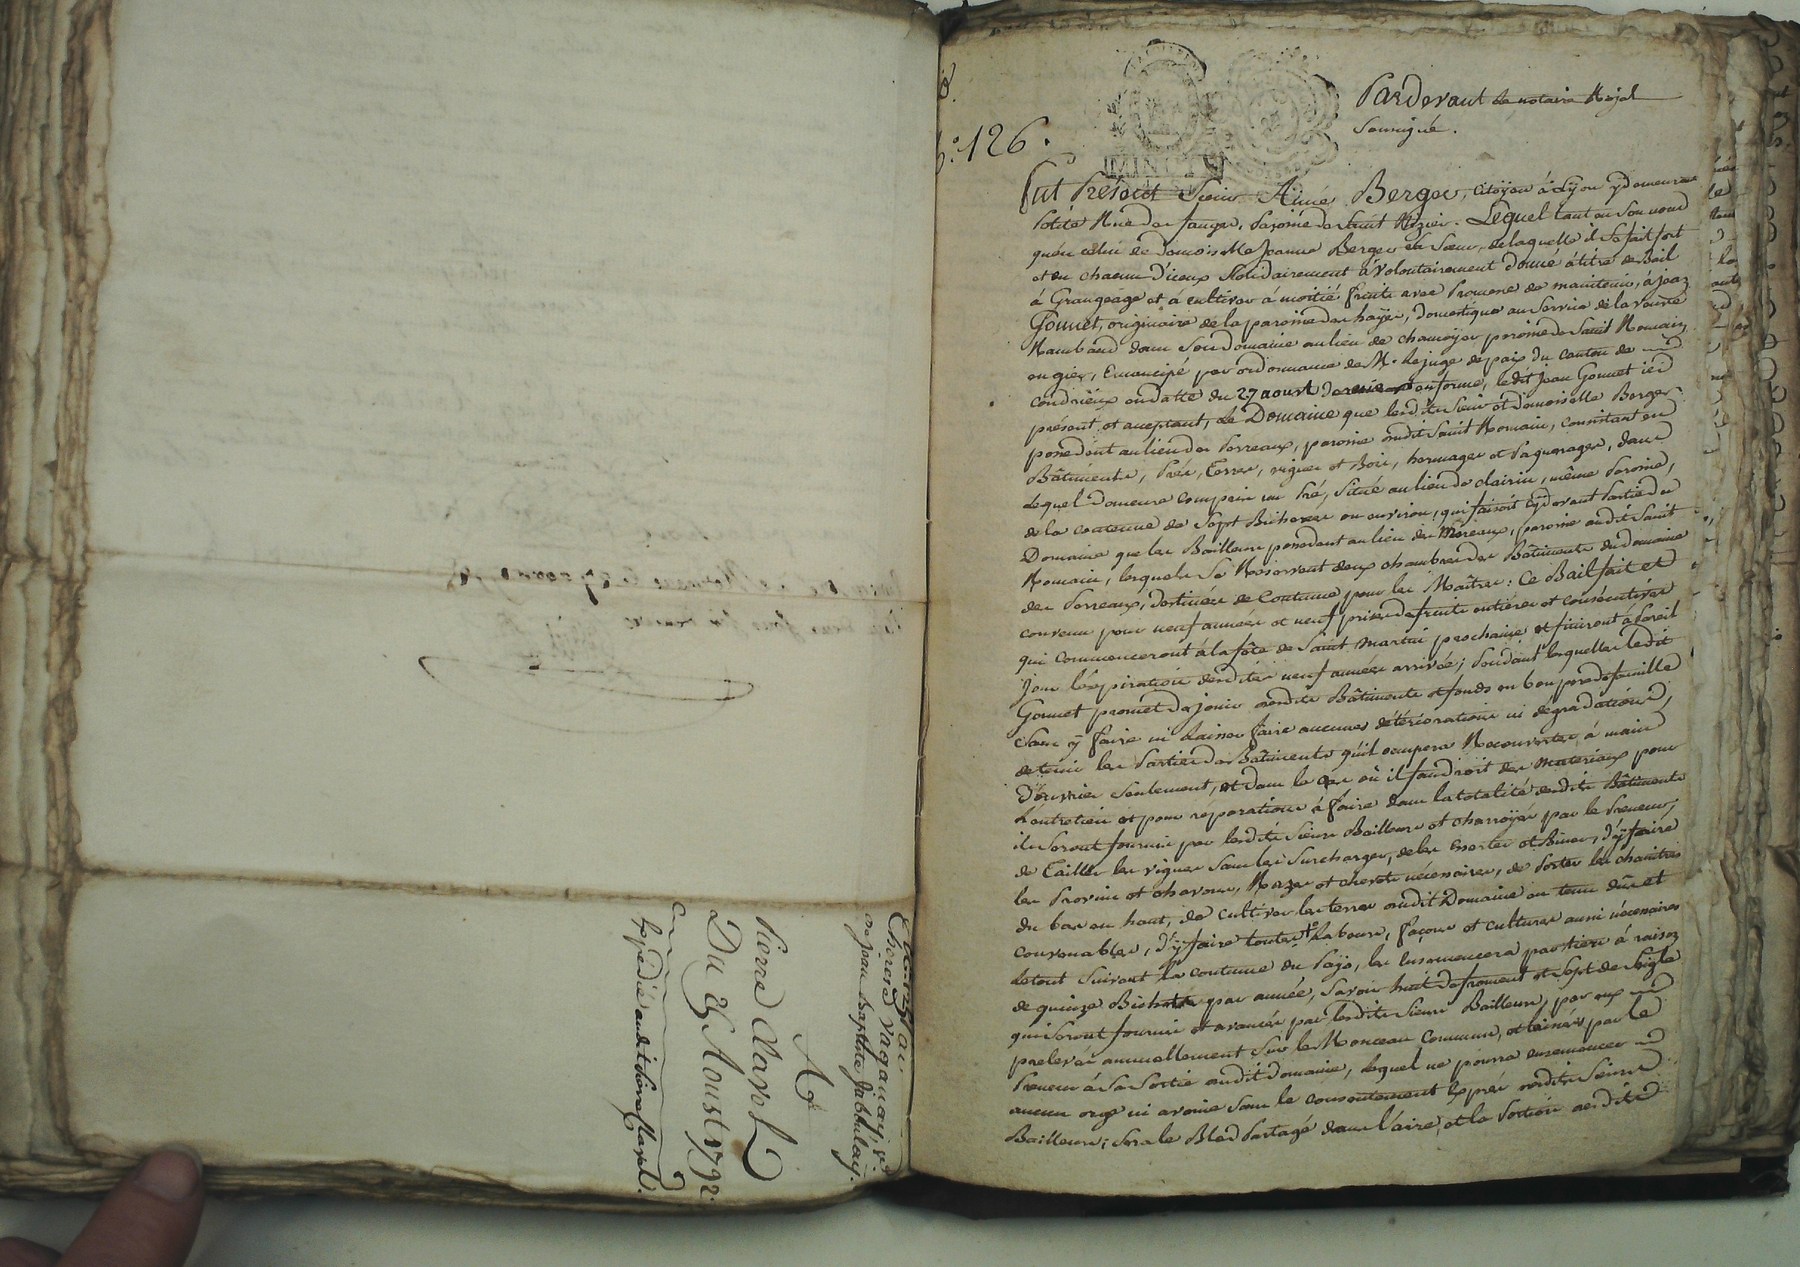 Quittance
Chorard Vaganay, ve
de Jean Baptiste Jabbulay.
A
Pierre Clarol
Du 25 Aoust 1792.
Expédié audit Pierre Clarol.
No. 126.
MINUTE
Pardevant le notaire Royal
Soussigné.
Fut Présent Sieur Aimé Berger, citoyen à Lyon y demeurant
Petite Rue de fauges, Paroisse de Saint Nizier. Lequel tant en son nom
qu'en celui de Demoiselle Jeanne Berger sa Sœur, de laquelle il se fait fort
et en chacun d'iceux Solidairement à volontairement donné à titre de Bail
à Grangeage et à cultiver à moitié fruits avec Promesse de maintenir, à Jean
Gonnet, originaire de la paroisse des hayes, domestique au Service de la veuve
Rambaud dans Son Domaine au lieu de chamoyer paroisse de Saint Romain
en gier, Emancipé par ordonnance de M. le juge de paix du canton de
condrieux en datte du 27 aoust dernier en forme, ledit Jean Gonnet ici
présent et acceptant, le Domaine que lesdits Sieur et demoiselle Berger
possedent au lieu des Perreaux, paroisse dudit Saint Romain, consistant en
Bâtiments, Prés, Terres, vignes et Bois, hermages et Paquerages, dans
lequel demeure compris un Pré, Situé au lieu de clairin, même Paroisse,
de la contenue de Sept Bicherées ou environ, qui faisoit cydevant Partie du
Domaine que les Bailleurs possedent au lieu des Moreaux, paroisse audit Saint
Romain, lesquels Se Reservent deux chambres des Bâtiments du domaine
des Perreaux, destinées de Coutume pour les Maîtres: Ce Bail fait et
convenu pour neuf années et neuf prises de fruits entières et consécutives
qui commenceront à la fête de Saint Martin prochaine et finiront à Pareil
Jour l'expiration desdites neuf années arrivée; Pendant lesquelles ledit
Gonnet promet de jouir desdits Bâtiments et fonds en bon pere de famille
Sans y faire ni laisser faire aucunes détériorations ni dégradations,
de tenir les Parties des Bâtiments qu'il occupera Recouvertes à main
d'ouvrier Seulement, et dans le cas où il faudroit des materiaux pour
l'entretien et pour réparations à faire dans la totalité desdits Bâtiments
ils Seront fournis par lesdits Sieurs Bailleurs et charroyés par le Preneur;
de Tailler les vignes Sans les Surcharger, de les Essarter et Biner, d'y faire
les Provins et chavons, Razes et chevets nécessaires, de Porter les chaintres
du bas en haut, de cultiver les terres dudit Domaine en tems dû et
convenables, d'y faire toutes les labours, façons et cultures aussi nécessaires
le tout Suivant la coutume du Pays, les Ensemencera pareillement à raison
de quinze Bichets par année, Savoir huit de froment et Sept de Seigle
qui Seront fournis et avancés par lesdits Sieurs Bailleurs, par eux
prelevés annuellement Sur le Monceau Commun, et laissés par le
Preneur à Sa Sortie dudit domaine, lequel ne pourra ensemencer
aucun orge ni avoine Sans le consentement Exprès desdits Sieurs
Bailleurs; Sera le Bled Partagé dans l'aire, et la Portion desdits